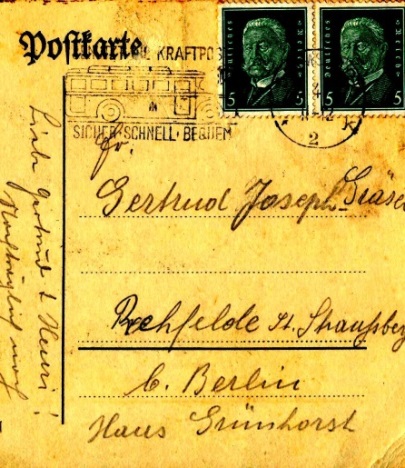 Postkarte
KRAFTPOS
SICHER·SCHNELL·BEQUEM
Deutsches Reich
5 5
Deutsches Reich
5 5
2
Fr.
Gertrud Joseph-
Rehfelde St. Strausberg
b. Berlin
Haus Grünhorst
Liebe Gertrud & Heini!
Nachträglich noch